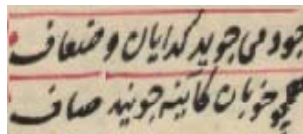 جود می جوید گدایان و ضعاف
همچو خوبان کآینه جویند صاف